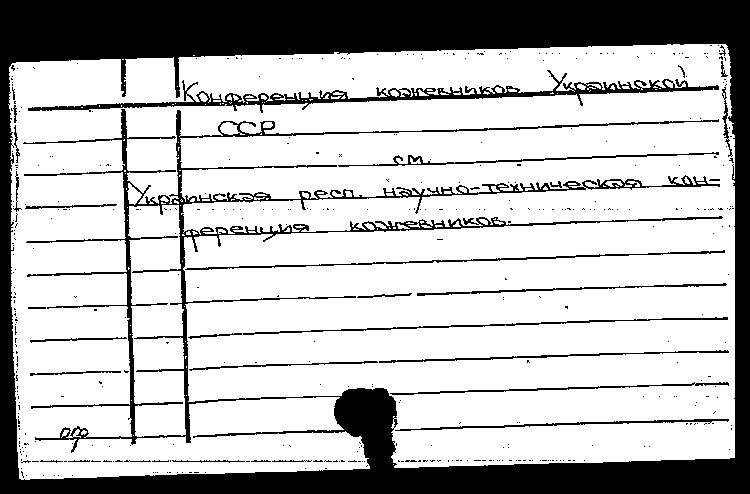 Конференция кожевников Украинской
ССР
см.
Украинская респ. научно-техническая кон-
ференция кожевников.